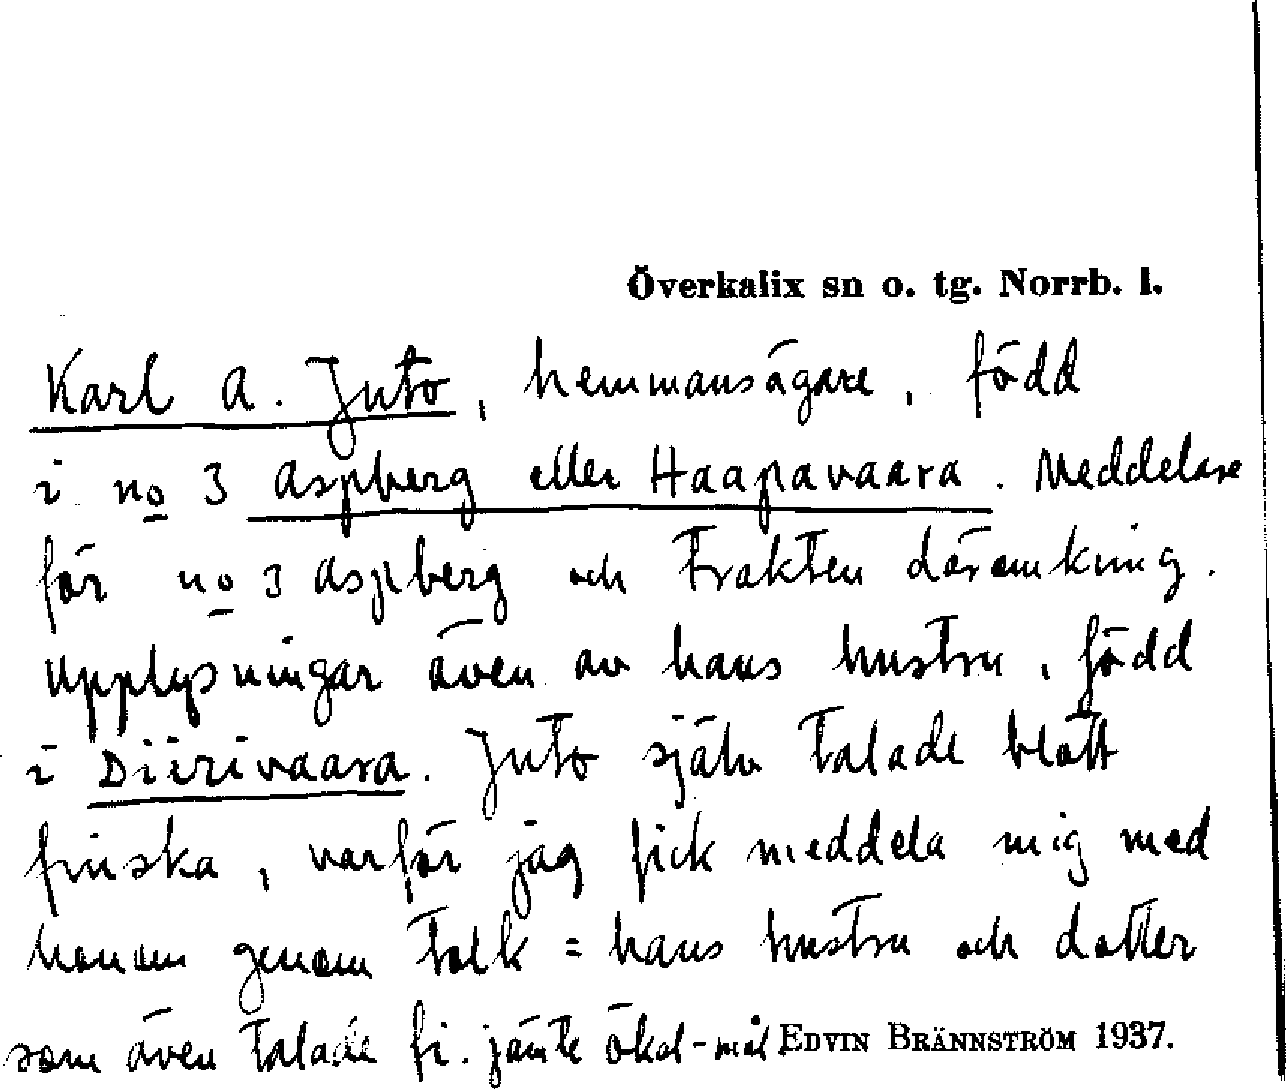 Överkalix sn o. tg. Norrb. l.
Karl A. Juto, hemmansägare, född
i no 3 Aspberg eller Haapavaara. Meddelare
för no 3 Aspberg och trakten däromkring.
Upplysningar även av hans hustru, född
i Diirivaara. Juto själv talade blott
finska, varför jag fick meddela mig med
honom genom tolk = hans hustru och dotter
som även talade fi. jämte ökal-mål.
EDVIN BRÄNNSTRÖM 1937.